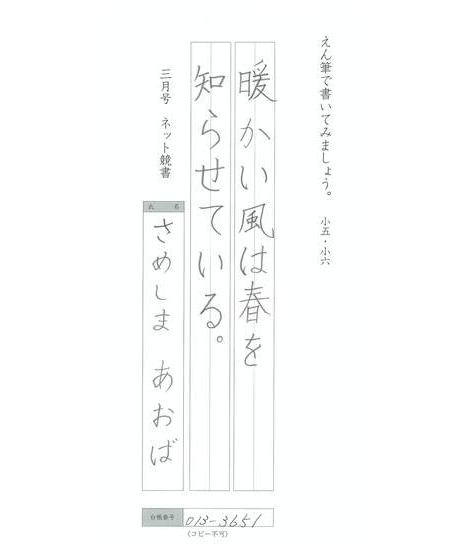 えん筆で書いてみましょう。 小五・小六
暖かい風は春を
知らせている。
三月号 ネット競書
氏 名
さめしま あおば
台帳番号 013-3651
(コピー不可)